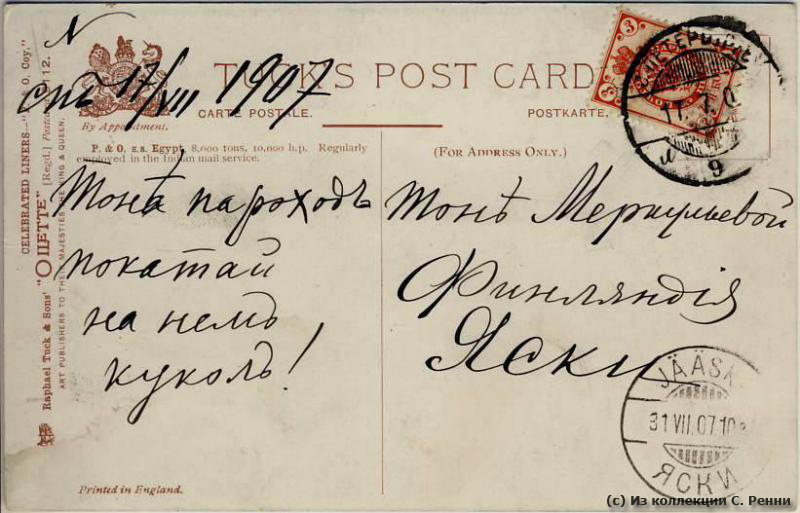 N
СПБ 17/VII 1907
TUCK'S POST CARD
CARTE POSTALE.
POSTKARTE.
By Appointment.
P. & O. s.s. Egypt, 8,000 tons, 10,000 h.p. Regularly
employed in the Indian mail service.
(FOR ADDRESS ONLY.)
CELEBRATED LINERS—"P. & O. Coy."
Raphael Tuck & Sons' "OILETTE" [Regd.] Postcard 112.
ART PUBLISHERS TO THEIR MAJESTIES THE KING & QUEEN.
Тонѣ пароходъ
покатай
на немъ
куколъ!
Тонѣ Меркульевой
Финляндія
Яски
3
3
17.7.0
9
JÄÄSK
31 VII.07.10
ЯСКИ
Printed in England.
(c) Из коллекции С. Ренни